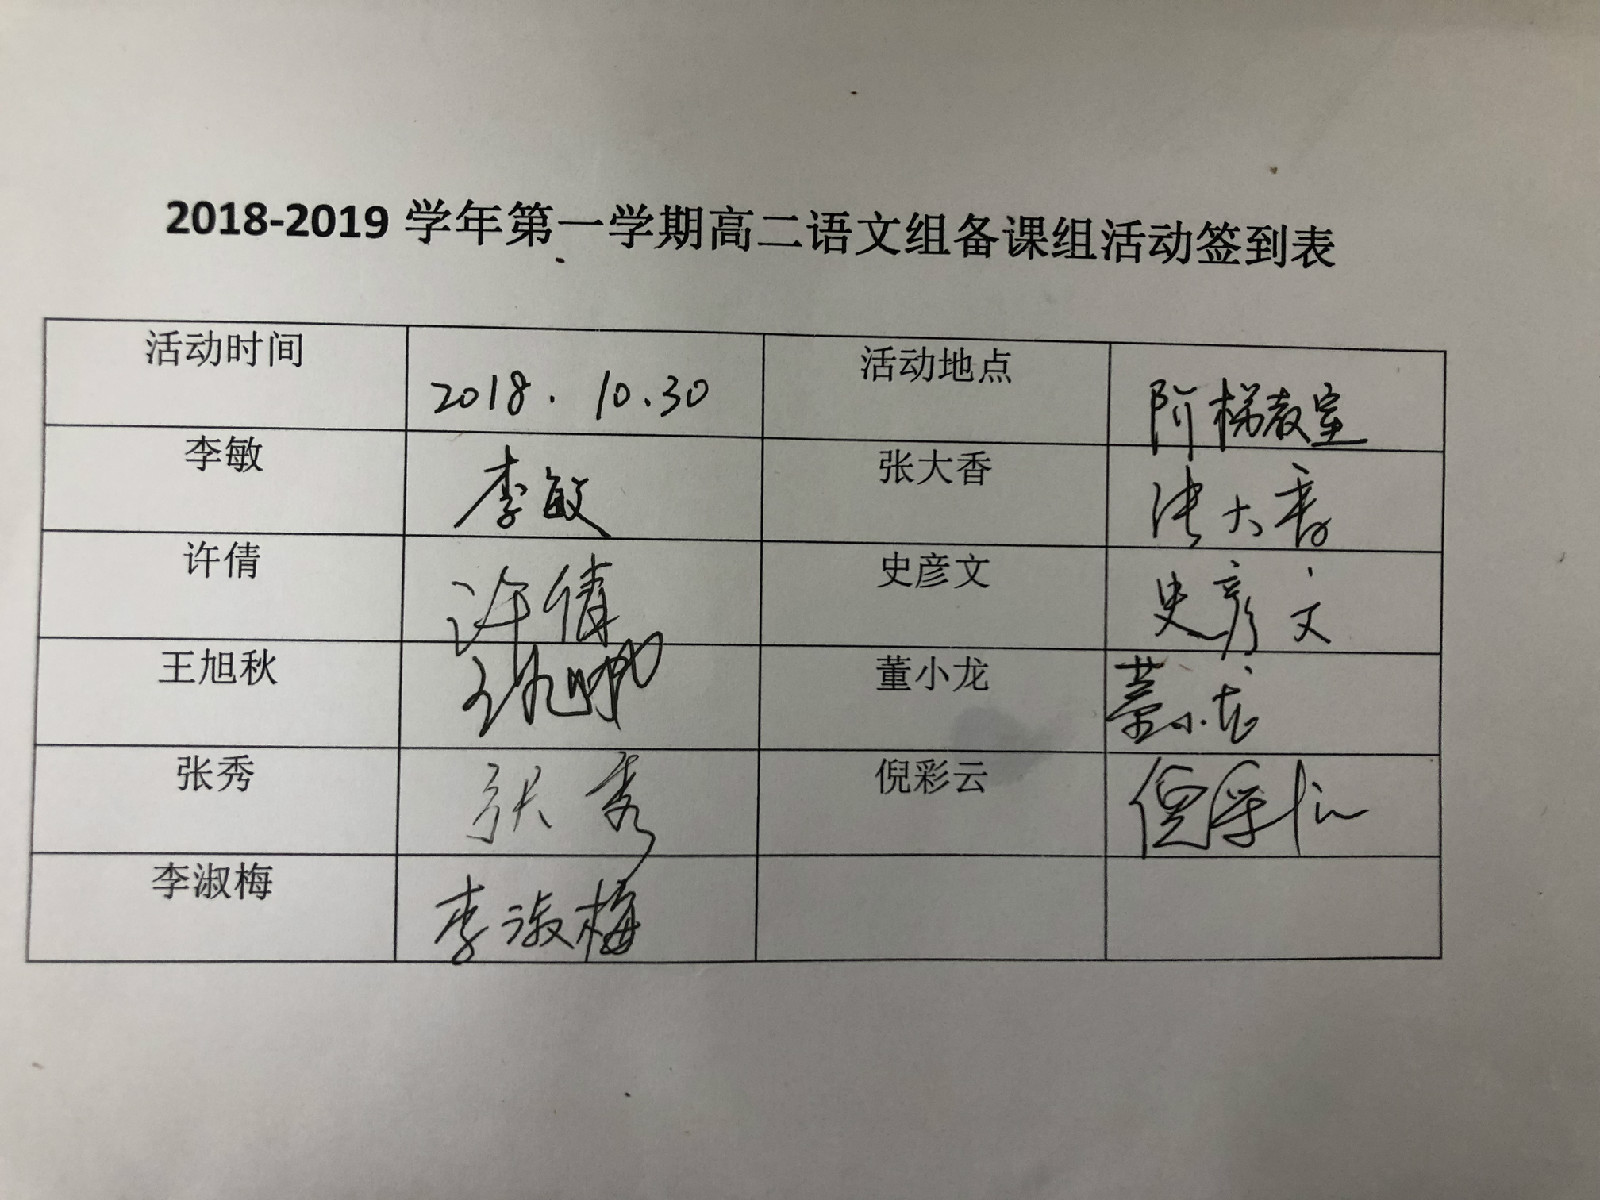 2018-2019 学年第一学期高二语文组备课组活动签到表
活动时间 2018.10.30 活动地点 阶梯教室
李敏 李敏 张大香 张大香
许倩 许倩 史彦文 史彦文
王旭秋 王旭秋 董小龙 董小龙
张秀 张秀 倪彩云 倪彩云
李淑梅 李淑梅